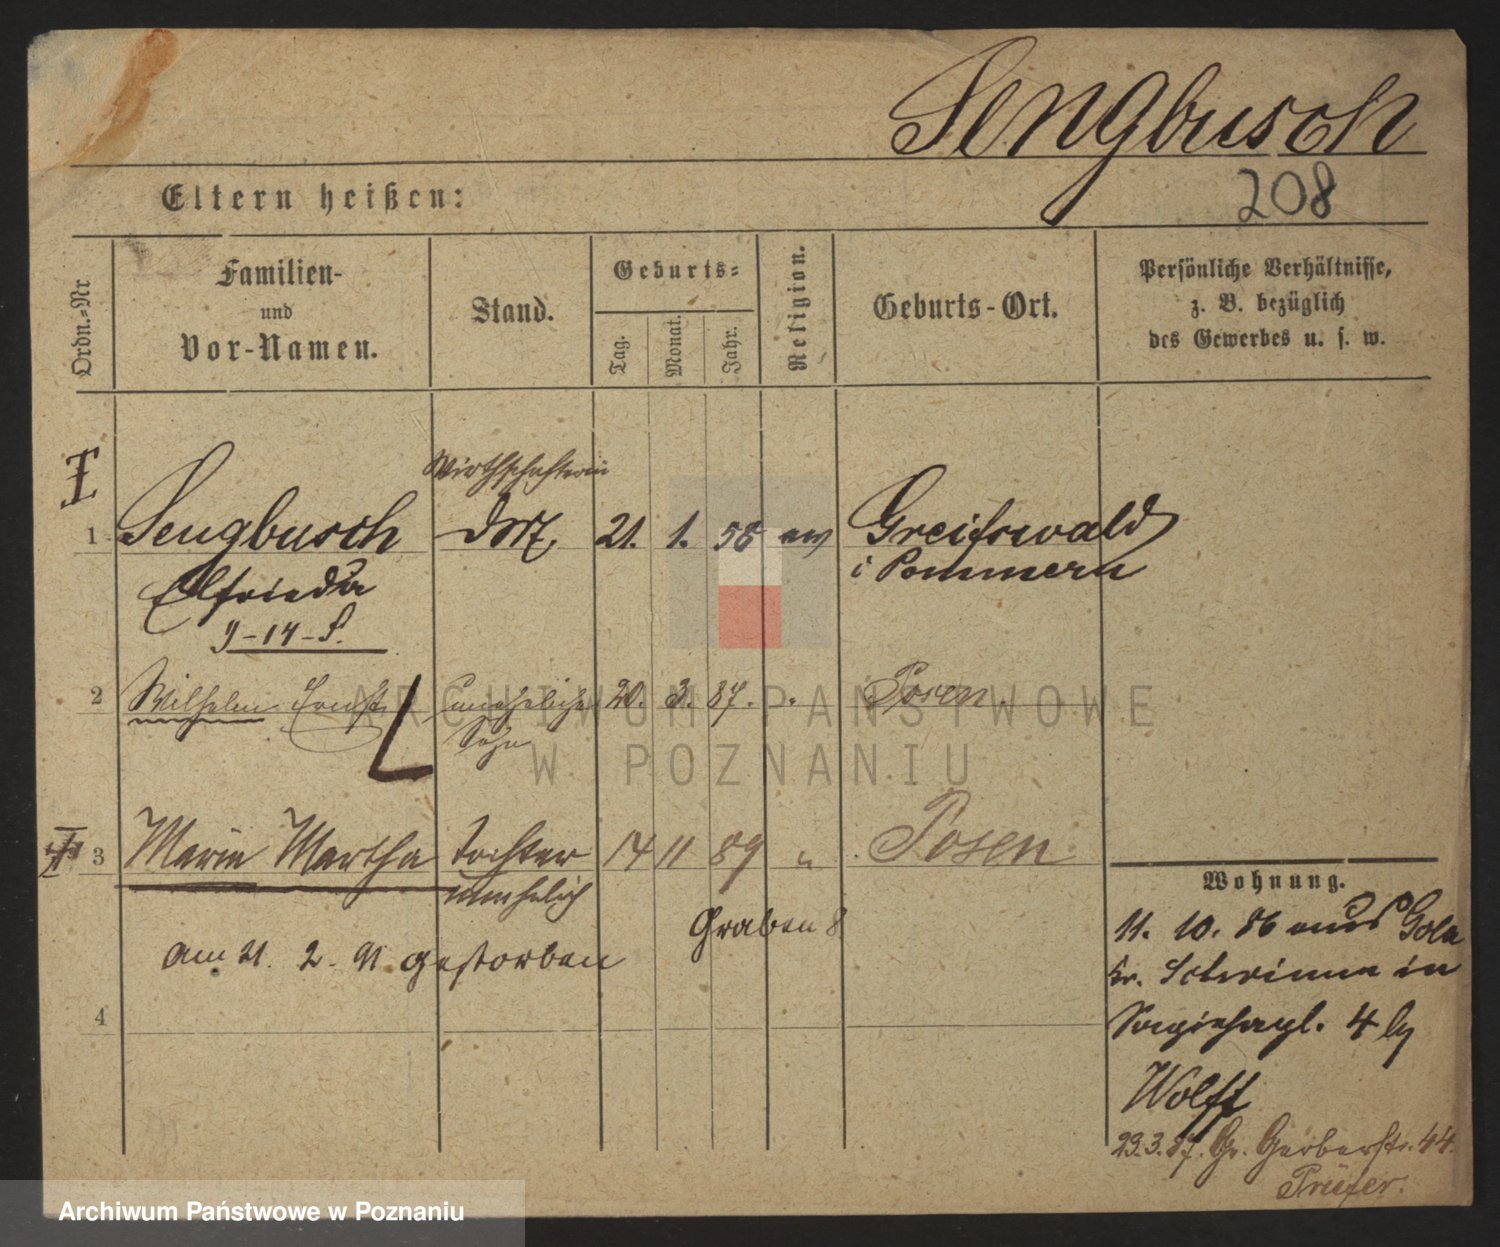 Sengbusch
208
Eltern heißen:
Ordn.-Nr
Familien-
und
Vor-Namen.
Stand.
Geburts-
Tag.
Monat.
Jahr.
Religion.
Geburts-Ort.
Persönliche Verhältnisse,
z. B. bezüglich
des Gewerbes u. s. w.
I
Wirthschafterin
1 Sengbusch 21. 1. 58 ev Greifswald
Elfrieda i Pommern
9-14-S.
2 Wilhelm Ernst unehelicher 20. 3. 87. " Posen
Sohn
3 Marie Martha Tochter 14 11 89 " Posen
unehelich
Graben 8
am 21. 2. 91 gestorben
4
Wohnung.
11. 10. 86 aus Gola
Kr. Schrimm in
4 bei
Wolff
29.3.87. Gr. Gerberstr. 44.
Prüfer.
ARCHIWUM PAŃSTWOWE
W POZNANIU
Archiwum Państwowe w Poznaniu